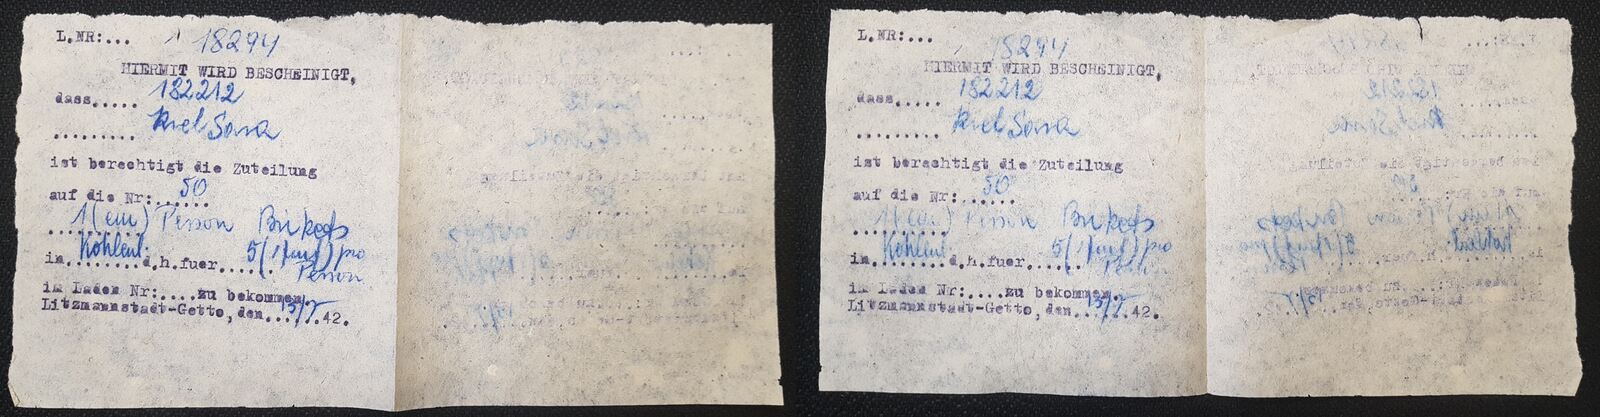 L.NR:... 18294
HIERMIT WIRD BESCHEINIGT,
dass..... 182212
......... Sona
ist berechtigt die Zuteilung
auf die Nr:...... 50
1 (ein) Person Brikets
in......... d.h.fuer...... 5 (fünf) pro
Person
im Laden Nr:....zu bekommen.
Litzmannstadt-Getto, den......42.
L.NR:... 18294
HIERMIT WIRD BESCHEINIGT,
dass..... 182212
......... Sona
ist berechtigt die Zuteilung
auf die Nr:...... 50
1 (ein) Person Brikets
in......... d.h.fuer...... 5 (fünf) pro
Person
im Laden Nr:....zu bekommen.
Litzmannstadt-Getto, den......42.